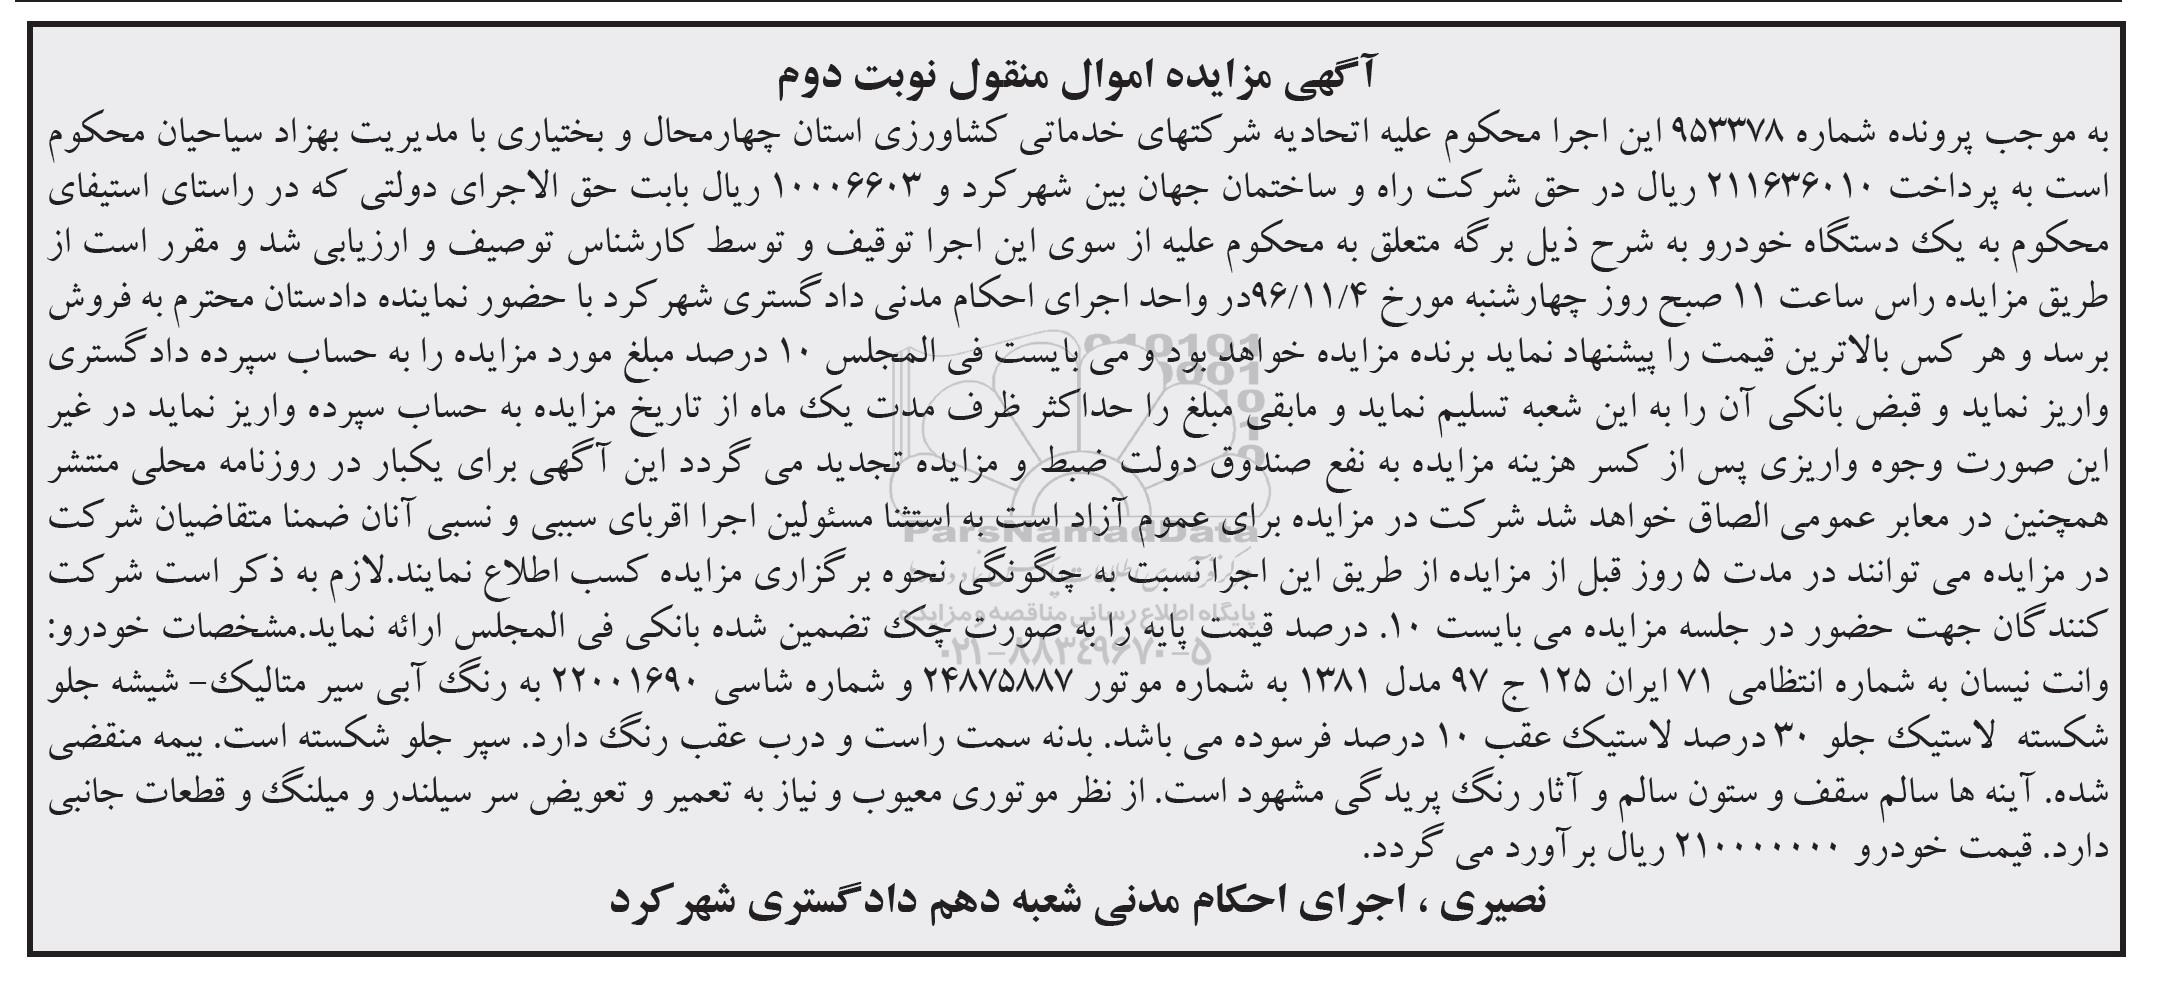 آگهی مزایده اموال منقول نوبت دوم
به موجب پرونده شماره ۹۵۳۳۷۸ این اجرا محکوم علیه اتحادیه شرکتهای خدماتی کشاورزی استان چهارمحال و بختیاری با مدیریت بهزاد سیاحیان محکوم
است به پرداخت ۲۱۱۶۳۶۰۱۰ ریال در حق شرکت راه و ساختمان جهان بین شهرکرد و ۱۰۰۰۶۶۰۳ ریال بابت حق الاجرای دولتی که در راستای استیفای
محکوم به یک دستگاه خودرو به شرح ذیل برگه متعلق به محکوم علیه از سوی این اجرا توقیف و توسط کارشناس توصیف و ارزیابی شد و مقرر است از
طریق مزایده راس ساعت ۱۱ صبح روز چهارشنبه مورخ ۹۶/۱۱/۴در واحد اجرای احکام مدنی دادگستری شهرکرد با حضور نماینده دادستان محترم به فروش
برسد و هر کس بالاترین قیمت را پیشنهاد نماید برنده مزایده خواهد بود و می بایست فی المجلس ۱۰ درصد مبلغ مورد مزایده را به حساب سپرده دادگستری
واریز نماید و قبض بانکی آن را به این شعبه تسلیم نماید و مابقی مبلغ را حداکثر ظرف مدت یک ماه از تاریخ مزایده به حساب سپرده واریز نماید در غیر
این صورت وجوه واریزی پس از کسر هزینه مزایده به نفع صندوق دولت ضبط و مزایده تجدید می گردد این آگهی برای یکبار در روزنامه محلی منتشر
همچنین در معابر عمومی الصاق خواهد شد شرکت در مزایده برای عموم آزاد است به استثنا مسئولین اجرا اقربای سببی و نسبی آنان ضمنا متقاضیان شرکت
ParsNamadData
در مزایده می توانند در مدت ۵ روز قبل از مزایده از طریق این اجرا نسبت به چگونگی نحوه برگزاری مزایده کسب اطلاع نمایند.لازم به ذکر است شرکت
پایگاه اطلاع رسانی مناقصه و مزایده
کنندگان جهت حضور در جلسه مزایده می بایست ۱۰. درصد قیمت پایه را به صورت چک تضمین شده بانکی فی المجلس ارائه نماید.مشخصات خودرو:
۰۲۱-۸۸۳۴۹۶۷۰-۵
وانت نیسان به شماره انتظامی ۷۱ ایران ۱۲۵ ج ۹۷ مدل ۱۳۸۱ به شماره موتور ۲۴۸۷۵۸۸۷ و شماره شاسی ۲۲۰۰۱۶۹۰ به رنگ آبی سیر متالیک- شیشه جلو
شکسته لاستیک جلو ۳۰ درصد لاستیک عقب ۱۰ درصد فرسوده می باشد. بدنه سمت راست و درب عقب رنگ دارد. سپر جلو شکسته است. بیمه منقضی
شده. آینه ها سالم سقف و ستون سالم و آثار رنگ پریدگی مشهود است. از نظر موتوری معیوب و نیاز به تعمیر و تعویض سر سیلندر و میلنگ و قطعات جانبی
دارد. قیمت خودرو ۲۱۰۰۰۰۰۰۰ ریال برآورد می گردد.
نصیری ، اجرای احکام مدنی شعبه دهم دادگستری شهرکرد